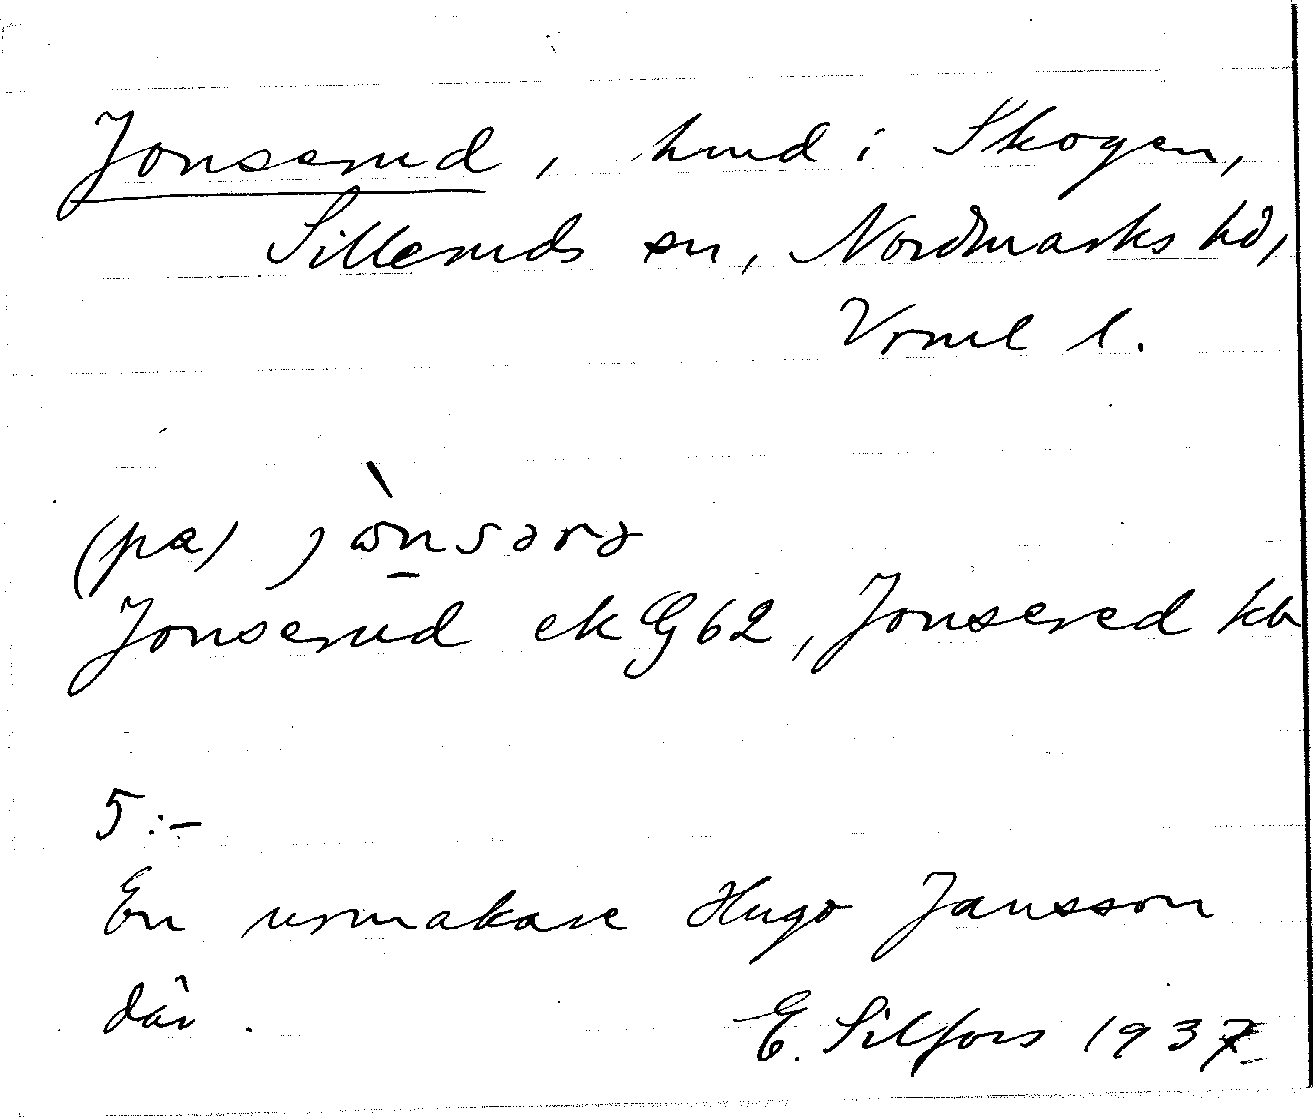 Jonserud, hmd i Skogen,
Silleruds sn, Nordmarks hd,
Vrml l.
(pa) jònsərə
Jonserud ekG62, Jonsered kb
5:-
En urmakare Hugo Jansson
där.
E. Silfors 1937